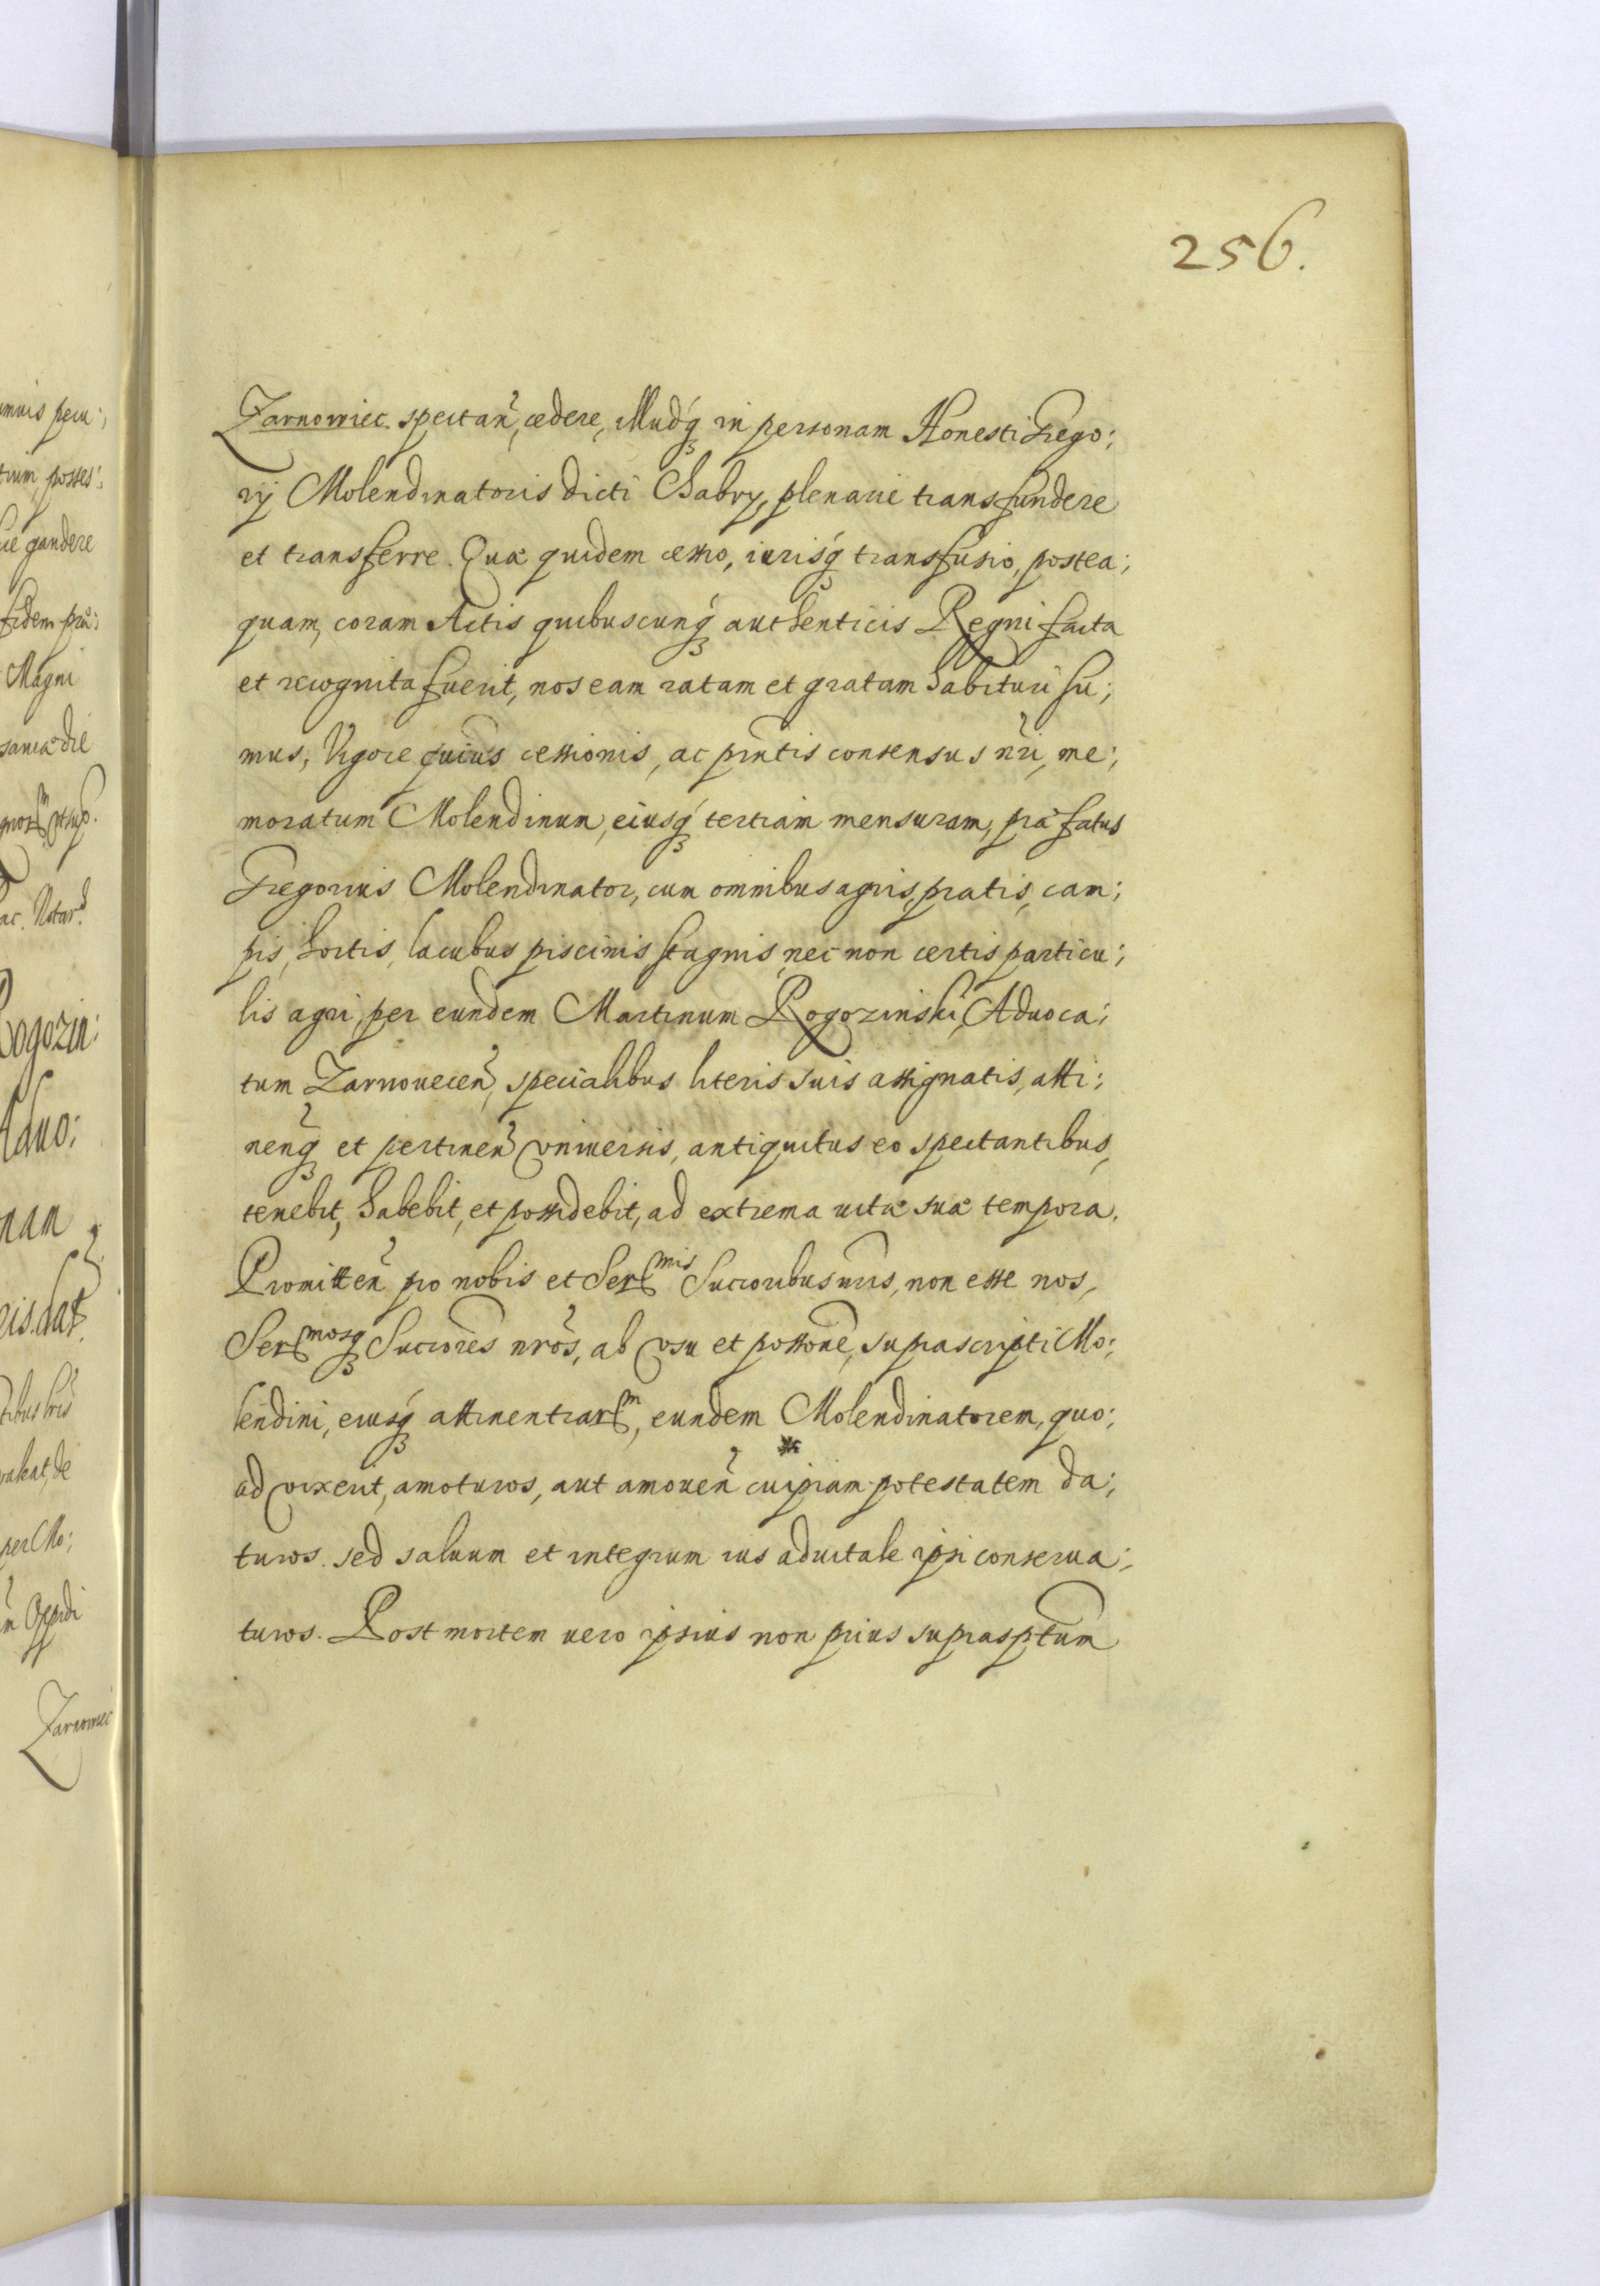 256.
Zarnowiec. spectan̄, cedere, illudq́ꝫ in personam Honesti Grego:
rij Molendinatoris dicti Chabry, plenarie transfundere
et transferre. Quæ quidem cessio, iurisq́ꝫ transfusio, postea:
quam, coram Actis quibuscunq́ꝫ authenticis Regni facta
et recognita fuerit, nos eam ratam et gratam habituri su:
mus, Vigore cuius cessionis, ac pn̄tis consensus nr̄i, me:
moratum Molendinum, eiusq́ꝫ tertiam mensuram, præfatus
Gregorius Molendinator, cum omnibus agris, pratis, cam:
pis, hortis, lacubus piscinis stagnis, nec non certis particu:
lis agri, per eundem Martinum Rogozinski, Aduoca:
tum Zarnouecen̄, specialibus literis suis assignatis, atti:
nen̄qꝫ et pertinen̄ vniuersis, antiquitus eo spectantibus,
tenebit, habebit, et possidebit, ad extrema uitæ suæ tempora.
Promitten̄ pro nobis et Ser[mis] Succoribus nris, non esse nos,
Ser[mosqꝫ] Succores nr̄os, ab vsu et posson̄e, suprascripti Mo:
lendini, eiusq́ꝫ attinentiar[m], eundem Molendinatorem, quo:
ad vixerit, amoturos, aut amouen̄ cuipiam potestatem da:
turos. sed saluum et integrum ius aduitale ipsi conserua:
turos. Post mortem uero ipsius non prius suprasptum
Zarnowiec